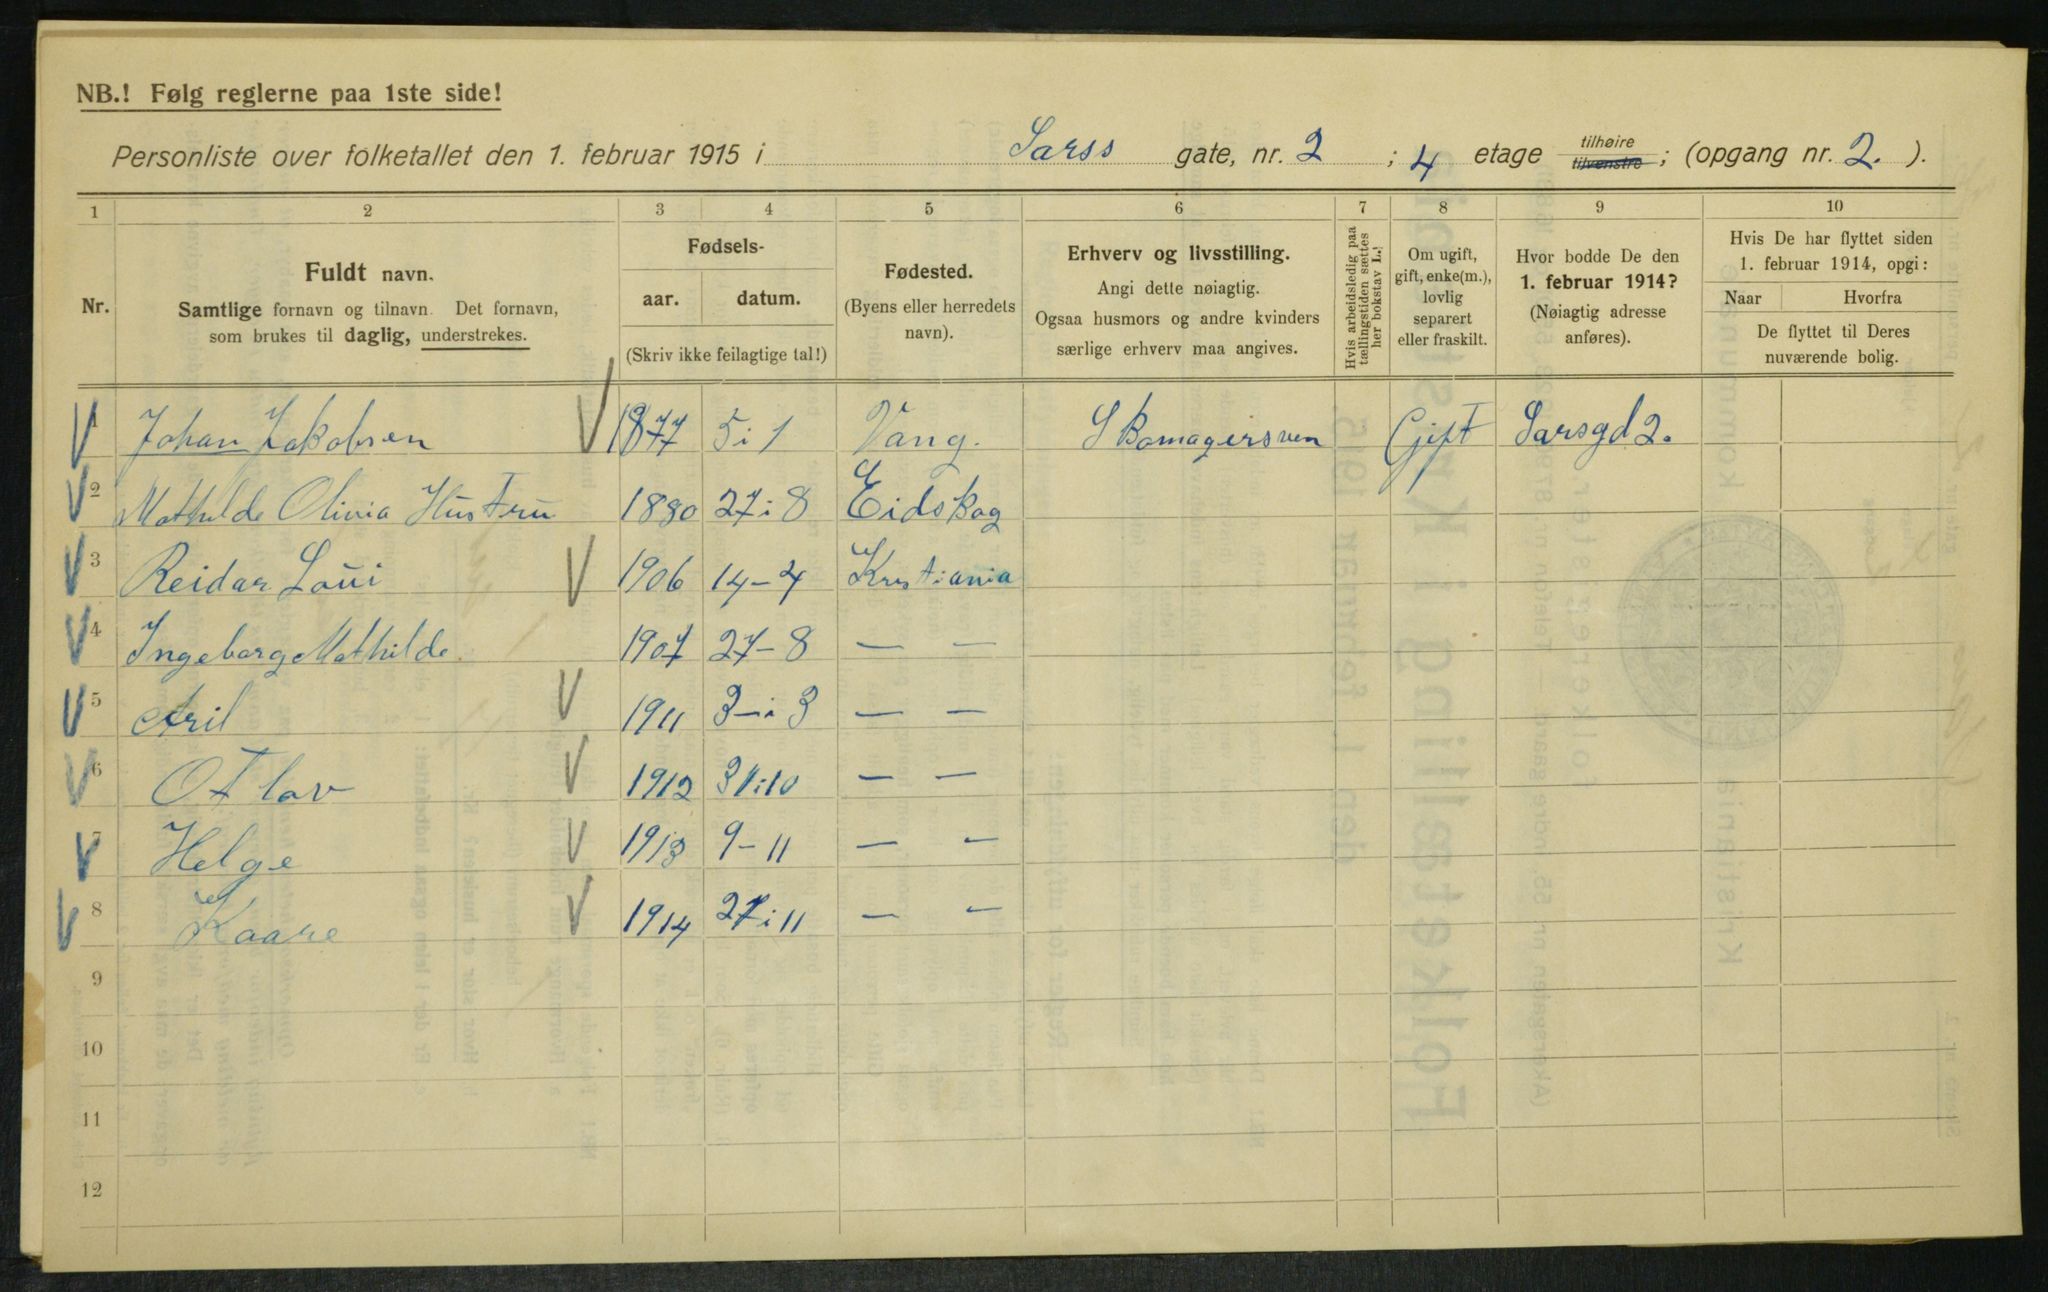 NB.! Følg reglerne paa 1ste side!
Personliste over folketallet den 1. februar 1915 i Sarss gate, nr. 2 ; 4 etage tilhøire tilvenstre ; (opgang nr. 2. ).
1 2 3 4 5 6 7 8 9 10
Nr.
Fuldt navn.
Samtlige fornavn og tilnavn. Det fornavn,
som brukes til daglig, understrekes.
Fødsels-
aar. datum.
(Skriv ikke feilagtige tal!)
Fødested.
(Byens eller herredets
navn).
Erhverv og livsstilling.
Angi dette nøiagtig.
Ogsaa husmors og andre kvinders
særlige erhverv maa angives.
Hvis arbeidsledig paa
tællingstiden sættes
her bokstav L.!
Om ugift,
gift, enke(m.),
lovlig
separert
eller fraskilt.
Hvor bodde De den
1. februar 1914?
(Nøiagtig adresse
anføres).
Hvis De har flyttet siden
1. februar 1914, opgi:
Naar Hvorfra
De flyttet til Deres
nuværende bolig.
1 Johan Jakobsen 1877 5 i 1 Vang. Skomagersven Gift Sarsgd 2.
2 Mathilde Olivia Hustru 1880 27 i 8 Eidskog
3 Reidar Loui 1906 14-4 Kristiania
4 Ingeborg Mathilde 1907 27-8 — —
5 Aril 1911 3-i 3 — —
6 Otlav 1912 31 i 10 — —
7 Helge 1913 9-11 — —
8 Kaare 1914 27 i 11 — —
9
10
11
12